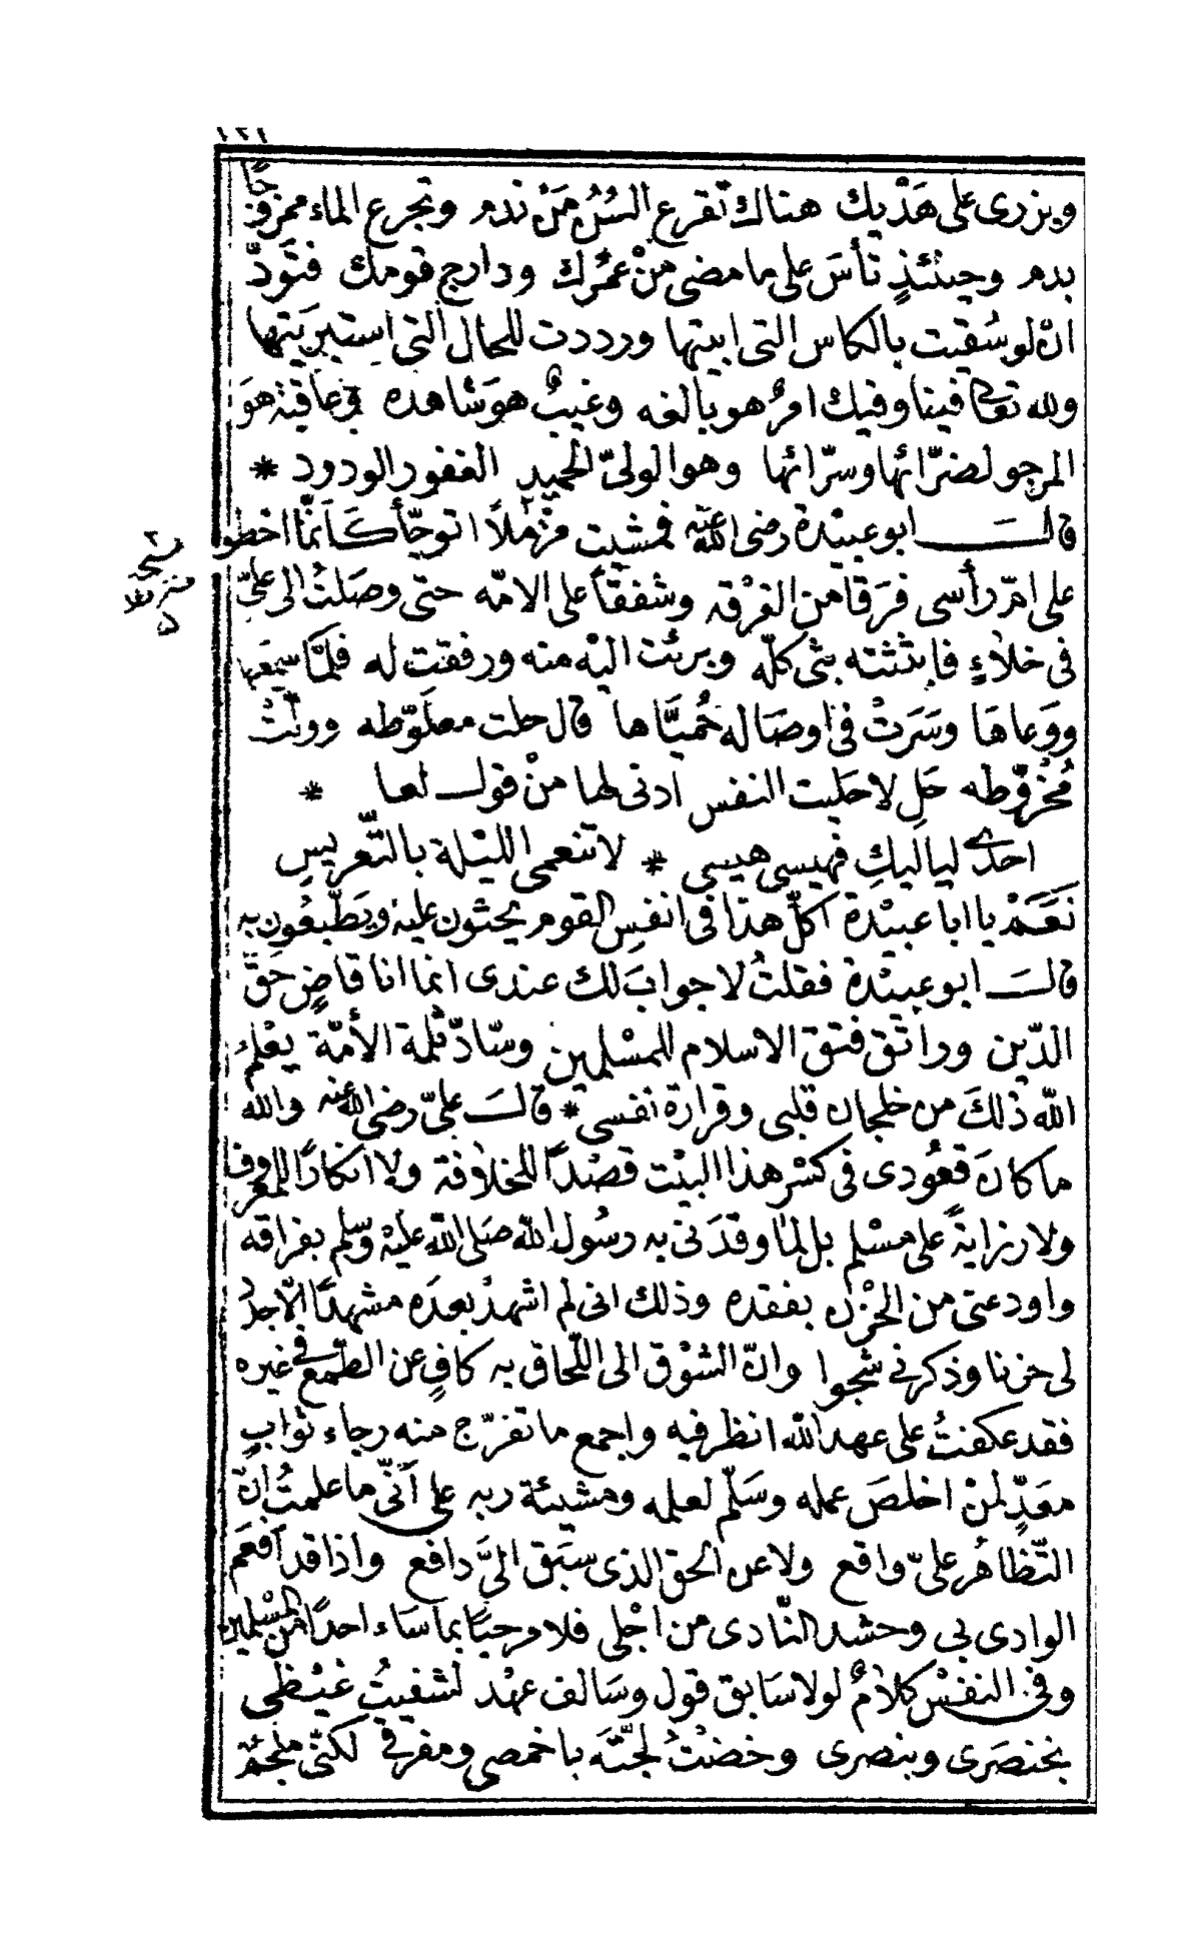 ١٢١
ويزرى على هَدْيك هناك تقرع السِّنَّ مَنْ ندم وتجرع الماء ممزوجًا
بدم وحينئذٍ تأسَ على ما مضى منْ عمُرك ودارج قومك فتَودّ
انْ لو سُقيت بالكاس التى ابيتها ورددت للحال التى استبريَتها
ولله تعالى فينا وفيك امرٌ هو بالغه وغيبٌ هوَ شاهده وعاقبة هوَ
المرجو لضرّائها وسرّائها وهو الولىّ الحميد الغفور الودود *
قالَ ابو عبيْدة رضى الله عنه فمشيت متزملاً اتوجّأ كَاَنمّا اخطو
على امّ رأسى فرَقًا من الفرْقه وشفقًا على الامّه حتى وصَلتُ الى علىّ
فى خلاءٍ فابثثته بثى كلّه وبرئت اليْه منه ورفقت له فلمّا سمعَها
ووَعاهَا وسَرَتْ فى اوصَاله حُميَّاها قال حلت معلَوّطه وولّتْ
مُخْروّطه حَلٍ لا حَليت النفس ادنى لها منْ قول لعا *
احدى لياليكِ فهيسى هيسى * لا تنعمى الليْلة بالتّعريسِ
نَعَمْ يا ابا عبيْدة أكلّ هذا فى انفس القوم يحثون عليْه ويَطَّبعُون به
قالَ ابو عبيْدة فقلتُ لا جوابَ لك عندى انما انا قاضٍ حَقّ
الدّين وراتق فتق الاسلام للمسْلمين وسَادّ ثلمة الأمّة يعْلمُ
الله ذلكَ من خلجان قلبى وقرارة نفسى * قالَ علىّ رضى الله عنه والله
ما كانَ قعُودى فى كسْر هذا البيْت قصْدًا للخلافة ولا انكارًا للمعروف
ولا زرايةً على مسْلم بل لمّا وقدَنى به رسُول الله صَلى الله عليْه وسلم بفراقه
واودعنى من الحزْن بفقده وذلك انى لم اشهدْ بعدَه مشهدًا الّا جدّدَ
لى حزنا وذكرنى شجوا وانّ الشوْق الى اللّحاق به كافٍ عن الطّمع فى غيره
فقد عكفتُ على عهد الله انظر فيه واجمع ما تفرّج منه رجاء ثوابٍ
معَدٍّ لمنْ اخلصَ عمله وسَلّم لعلمه ومشيئة ربه على اَنّى ما علمتُ انّ
التّظاهُر علىّ واقع ولا عن الحق الذى سبَق الىَّ دافع واذا قد اَفعَم
الوادى بى وحشد النّادى من اجْلى فلا مرحبًا بما سَاء احدًا من المسْلمين
وفى النفسْ كلامٌ لولا سَابق قول وسَالف عهْد لشفيتُ غيْظى
بخنصَرى وبنصرى وخضتُ لجّتَه باخمصى ومفرقى لكنّى ملجمٌ